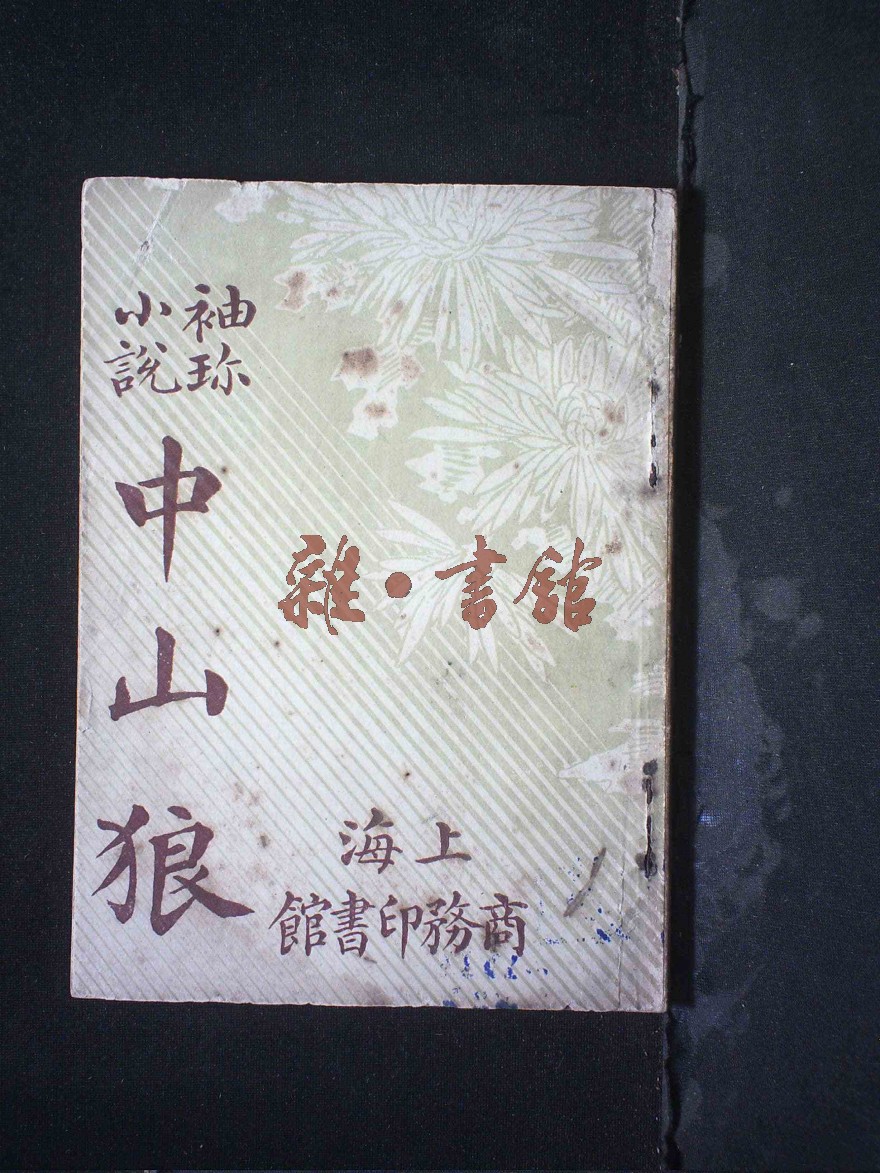 袖珎
小說
中山狼
雜·書館
上海
商務印書館